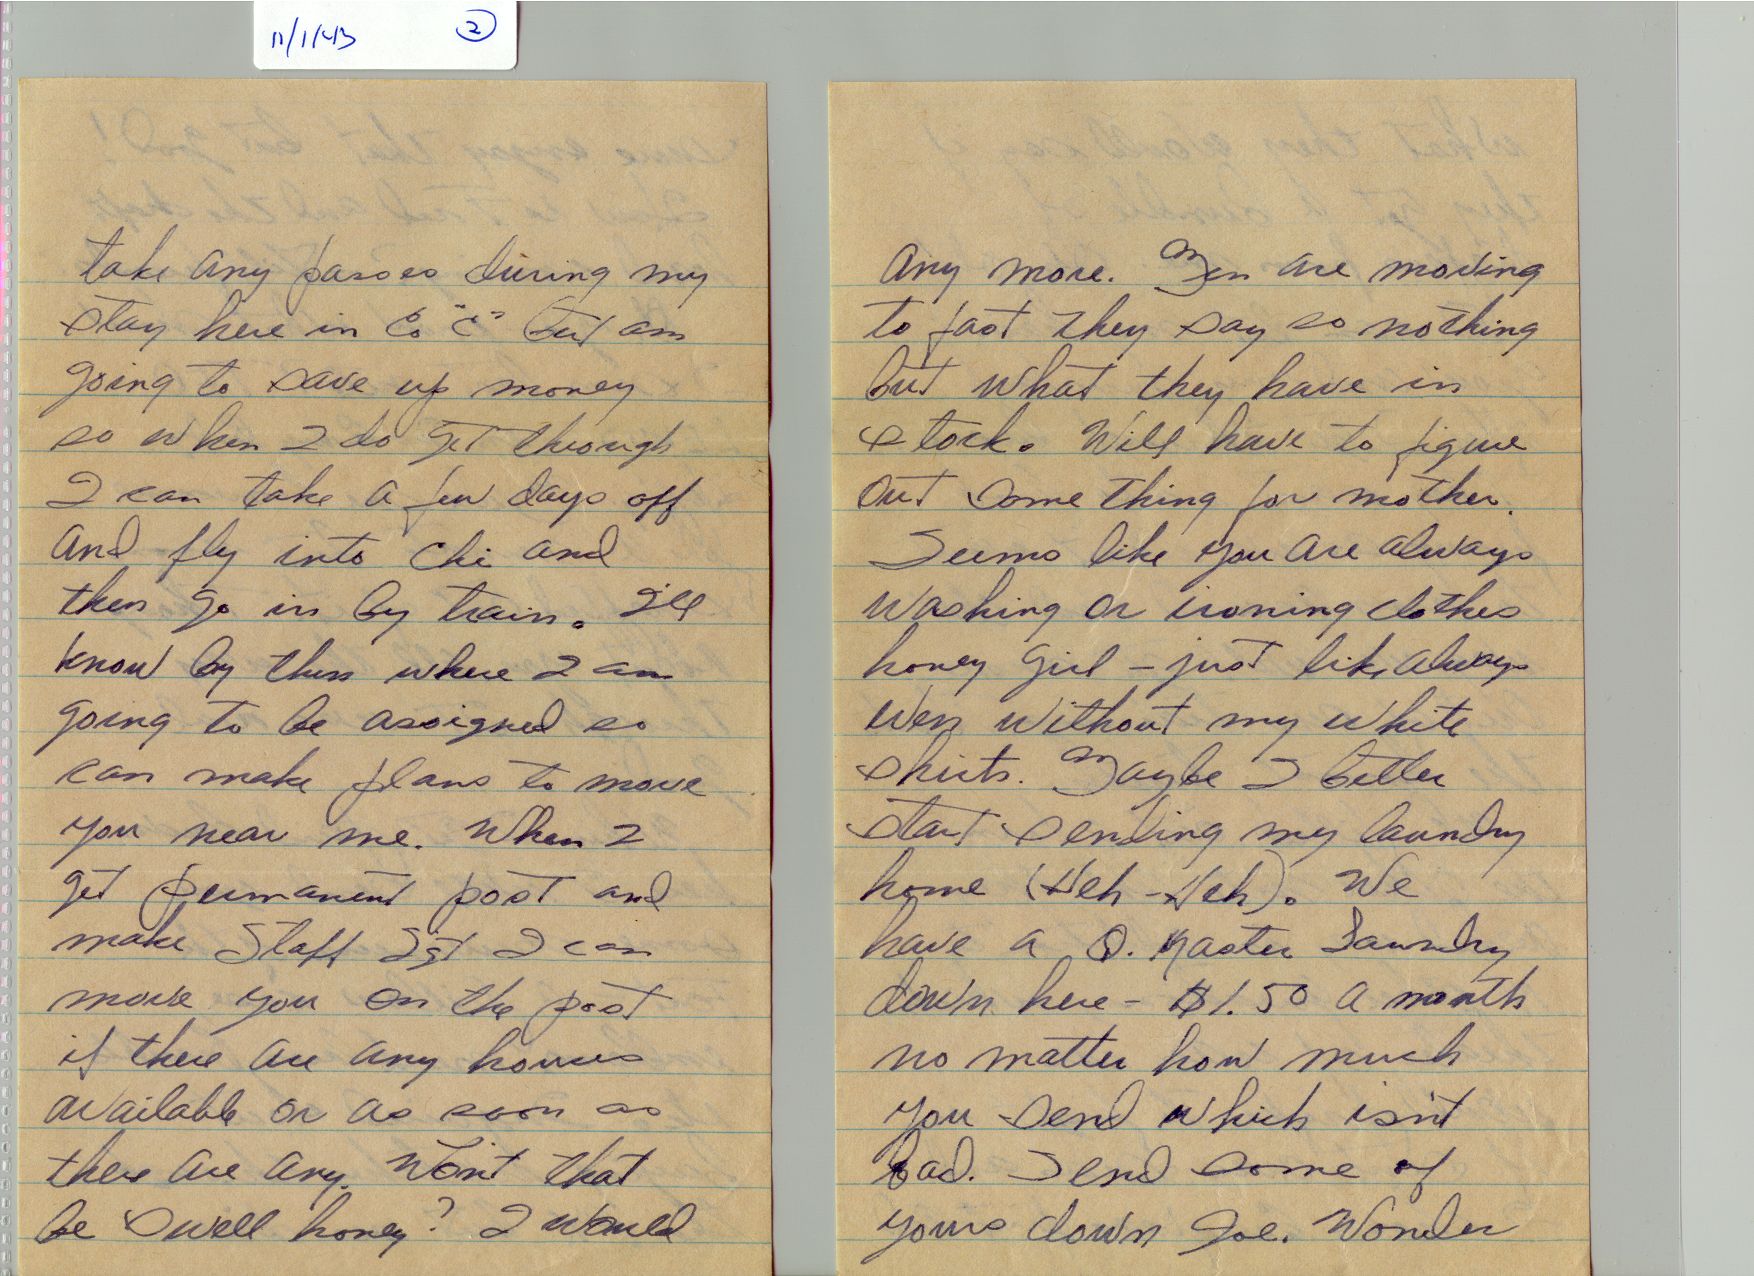 11/1/43 2
take any passes during my
stay here in Co "C" but am
going to save up money
so when I do get through
I can take a few days off
and fly into Chi and
then go in by train. I'll
know by then where I am
going to be assigned so
can make plans to move
you near me. When I
get permanent post and
make Staff Sgt I can
move you on the post
if there are any houses
available or as soon as
there are any. Won't that
be swell honey? I would
any more. Men are moving
to fast they say so nothing
but what they have in
stock. Will have to figure
out something for mother.
Seems like you are always
washing or ironing clothes
honey girl - just like always
even without my white
shirts. Maybe I better
start sending my laundry
home (Heh - Heh). We
have a Q. Master Laundry
down here - $1.50 a month
no matter how much
you send which isn't
bad. Send some of
yours down Joe. Wonder